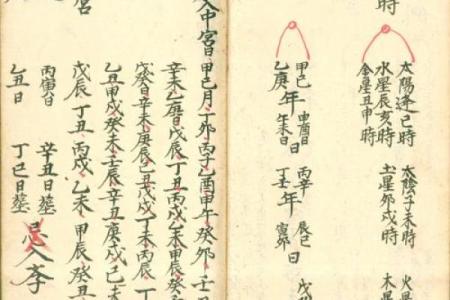 時
太陽逢巳時 太陰子未時 火星
水星辰亥時 土星卯戌時 木星
金星丑申時
甲巳年申酉日 丙辛年辰巳日 戊
乙庚年午未日 丁壬年寅卯日
入中宮日 甲巳月 丁卯 丙子 乙酉 甲午 癸卯 壬
辛未 乙庚日 戊辰 丁丑 丙戌 乙未 甲辰 癸
戊癸日 辛未 庚辰 己丑 戊戌 丁未 丙辰 丁
乙丑 甲戌 癸未 壬辰 辛丑 庚戌 己未
戊辰 丁丑 丙戌 乙未 甲辰 癸丑
宮
丙寅日 辛丑日塟 忌入孝
乙丑日 丁巳日塟